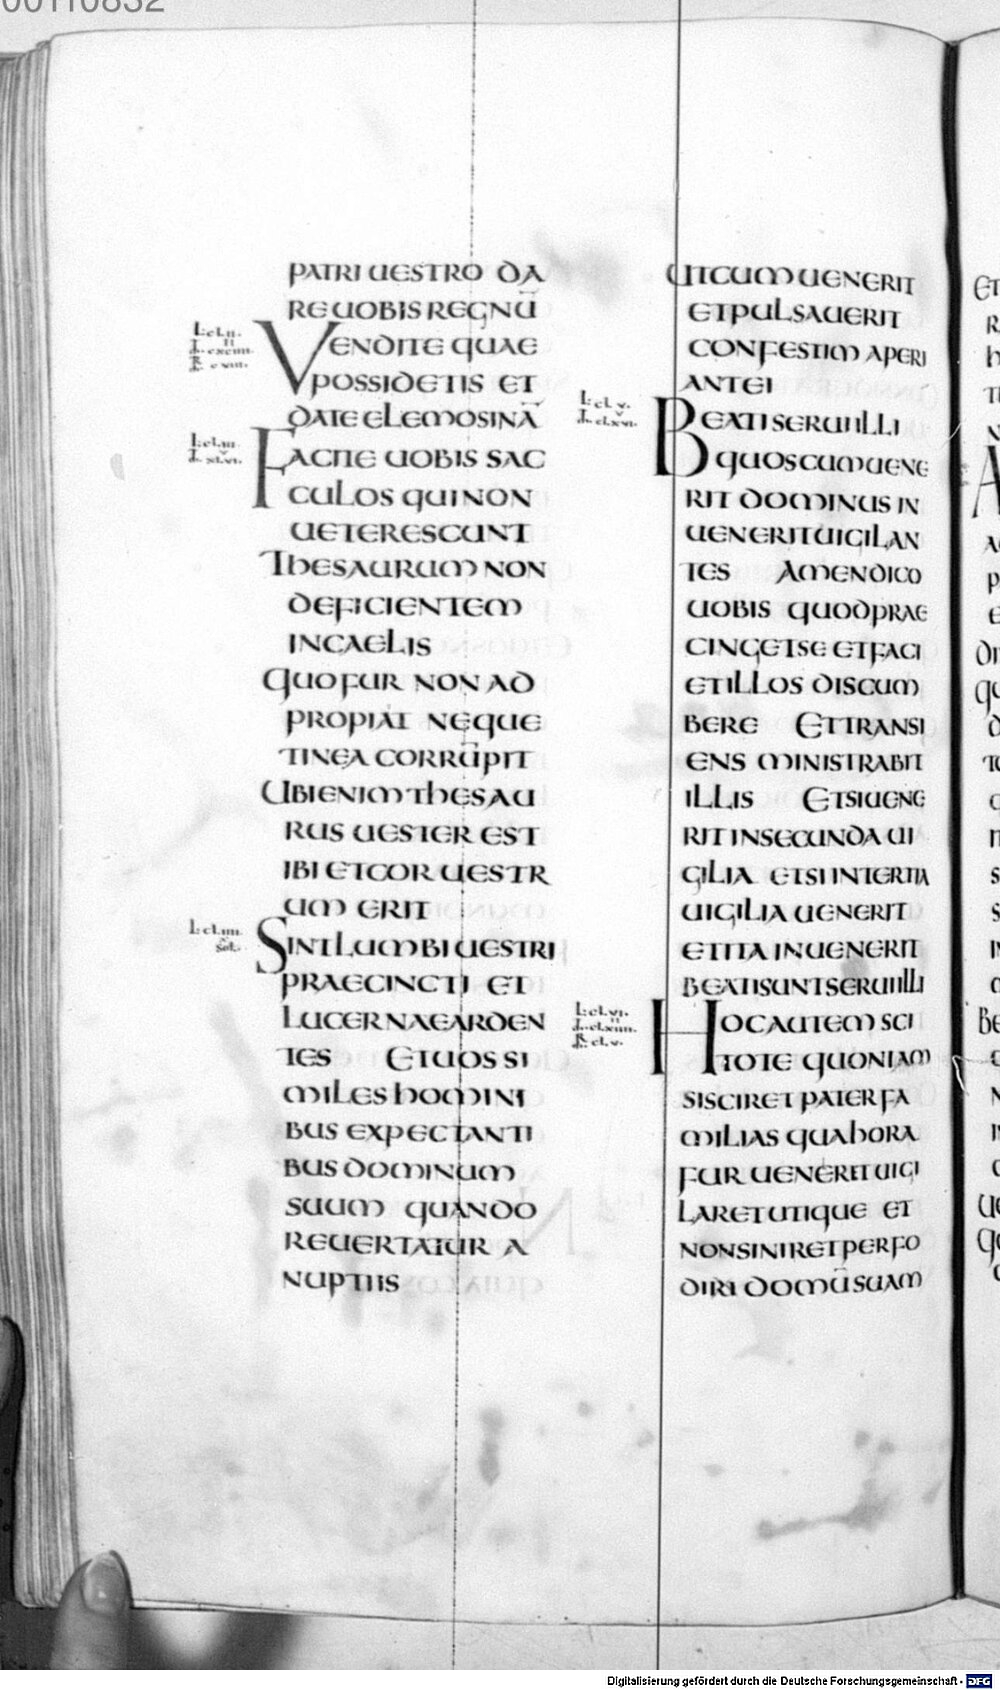 00110832
PATRI UESTRO DA
RE UOBIS REGNŪ
VENDITE QUAE
POSSIDETIS ET
DATE ELEMOSINĀ
FACITE UOBIS SAC
CULOS QUI NON
UETERESCUNT
THESAURUM NON
DEFICIENTEM
IN CAELIS
QUO FUR NON AD
PROPIAT NEQUE
TINEA CORRUPIT
UBI ENIM THESAU
RUS UESTER EST
IBI ET COR UESTR
UM ERIT
SINT LUMBI UESTRI
PRAECINCTI ET
LUCERNAE ARDEN
TES ET UOS SI
MILES HOMINI
BUS EXPECTANTI
BUS DOMINUM
SUUM QUANDO
REUERTATUR A
NUPTIIS
UT CUM UENERIT
ET PULSAUERIT
CONFESTIM APERI
ANT EI
BEATI SERUI ILLI
QUOS CUM UENE
RIT DOMINUS IN
UENERIT UIGILAN
TES AMEN DICO
UOBIS QUOD PRAE
CINGET SE ET FACI
ET ILLOS DISCUM
BERE ET TRANSI
ENS MINISTRABIT
ILLIS ET SI UENE
RIT IN SECUNDA UI
GILIA ET SI IN TERTIA
UIGILIA UENERIT
ET ITA INUENERIT
BEATI SUNT SERUI ILLI
HOC AUTEM SCI
TOTE QUONIAM
SI SCIRET PATER FA
MILIAS QUA HORA
FUR UENERET UIGI
LARET UTIQUE ET
NON SINIRET PERFO
DIRI DOMŪ SUAM
Digitalisierung gefördert durch die Deutsche Forschungsgemeinschaft - DFG